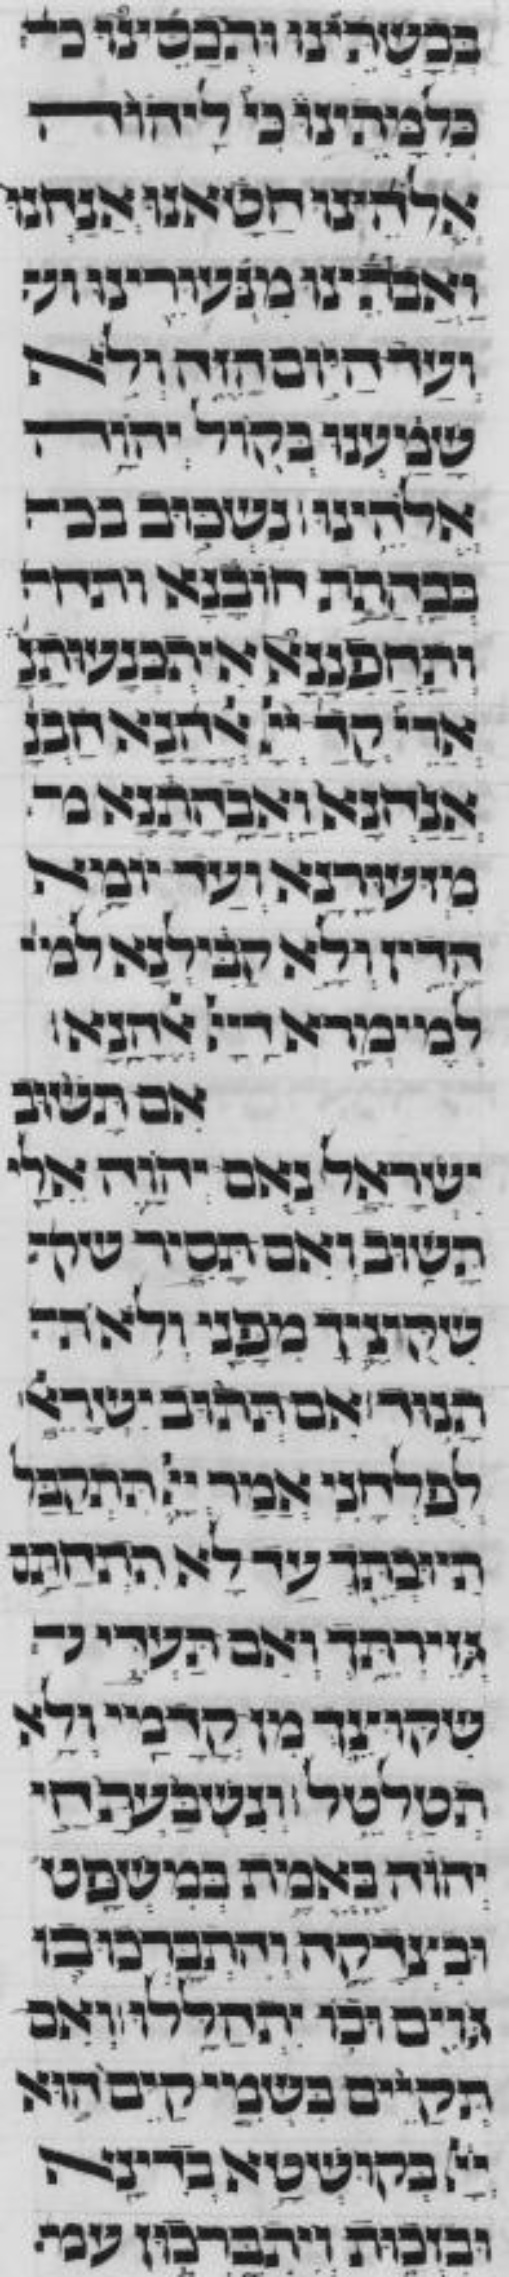 בבשתינו ותכסינו כל
כלמתינו כי ליהוה
אלהינו חטאנו אנחנו
ואבתינו מנעורינו וע
ועד היום הזה ולא
שמענו בקול יהוה
אלהינו נשכוב בבה
בבהתת חובנא ותחה
ותחפננא איתכנעותנ
ארי קד ייי אלהנא חבנ
אנחנא ואבהתנא מ
מזעורנא ועד יומא
הדין ולא קבילנא למי
למימרא דייי אלהנא
אם תשוב
ישראל נאם יהוה אלי
תשוב ואם תסיר שקי
שקוציך מפני ולא ת
תנוד אם תתוב ישראל
לפלחני אמר ייי תתקבל
תיובתך עד לא תתחתם
גזירתך ואם תעדי ש
שקוצך מן קדמי ולא
תטלטל ונשבעת חי
יהוה באמת במשפט
ובצדקה והתברכו בו
גוים ובו יתהללו ואם
תקיים בשמי קים הוא
ייי בקושטא בדינא
ובזכות ויתברכון עמי